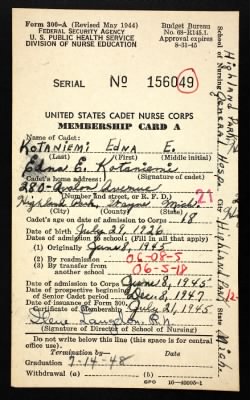 Form 300-A (Revised May 1944)
FEDERAL SECURITY AGENCY
U. S. PUBLIC HEALTH SERVICE
DIVISION OF NURSE EDUCATION
Budget Bureau
No. 68-R145.1.
Approval expires
8-31-45
SERIAL No 156049
UNITED STATES CADET NURSE CORPS
MEMBERSHIP CARD A
Name of Cadet:
Kotaniemi Edna E.
(Last) (First) (Middle initial)
Edna E. Kotaniemi
Cadet's home address: (Signature of cadet)
280 Avalon Avenue 21
(Number and street, or R. F. D.)
Highland Park, Wayne Mich.
(City) (County) (State)
Cadet's age on date of admission to Corps 18
Date of birth July 29, 1926.
Dates of admission to school: (Fill in all that apply)
(1) Originally June 8, 1945
(2) By readmission 06-08-5
(3) By transfer from
another school 06-5-18
Date of admission to Corps June 8, 1945
Date of prospective beginning
of Senior Cadet period Dec. 8, 1947
Date of issuance of Form 300,
Certificate of Membership July 21, 1945
Langdon, R.N.
(Signature of Director of School of Nursing)
Do not write below this line (this space is for central
office use).
Termination by— Date
Graduation 7-14-48
Withdrawal (a) (b)
GPO 16-40095-1
School of Nursing Highland Park General Hosp. City Highland Park State Mich.